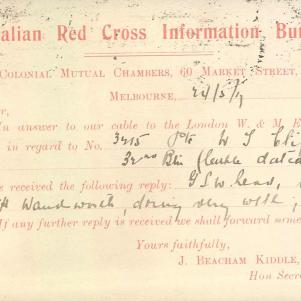 alian Red Cross Information Bu
COLONIAL MUTUAL CHAMBERS, 60 MARKET STREET,
MELBOURNE, 24/5/7
r,
In answer to our cable to the London W. & M. E
in regard to No. 3215 Pte W J
32nd Btn (cable dated
s received the following reply: G.S.W. head,
Wandsworth, doing very well,
If any further reply is received we shall forward same
Yours faithfully,
J. BEACHAM KIDDLE,
Hon Secre